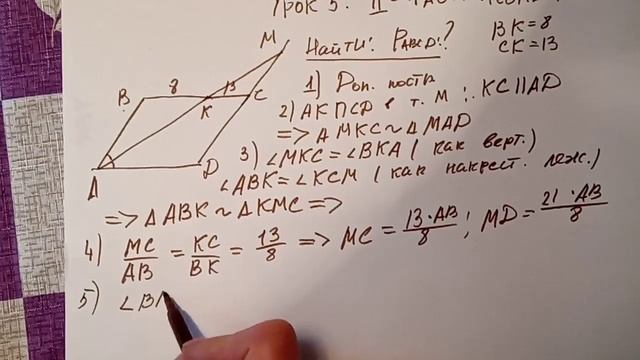 Урок 5.
Найти: PABCD?
BK=8
CK=13
M
B
8
13
C
K
A
D
1) Доп. постр
2) AK ∩ CD в т. M ; KC||AD
=> △ MKC ~ △ MAD
3) ∠MKC = ∠BKA ( как верт.)
∠ABK = ∠KCM ( как накрест. леж.)
=> △ ABK ~ △ KMC =>
4) MC/AB = KC/BK = 13/8 => MC = 13·AB/8 ; MD = 21·AB/8
5) ∠B